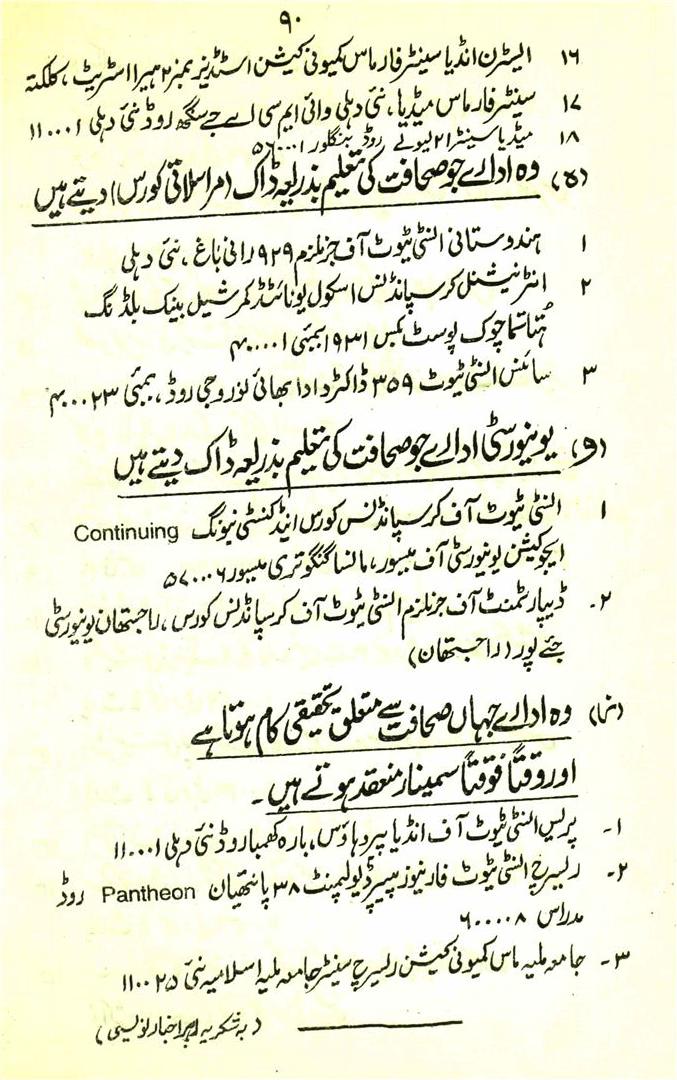 ۹۰
۱۶ ایسٹرن انڈیا سینٹر فار ماس کمیونی کیشن اسٹڈیز نمبر ۲ ہیرا اسٹریٹ، کلکتہ
۱۷ سینٹر فار ماس میڈیا، نئی دہلی وائی ایم سی اے جے سنگھ روڈ نئی دہلی ۱۱۰۰۰۱
۱۸ میڈیا سینٹر ۲۱ روڈ بنگلور ۵۶۰۰۰۱
(ہ) وہ ادارے جو صحافت کی تعلیم بذریعہ ڈاک (مراسلاتی کورس) دیتے ہیں
۱ ہندوستانی انسٹی ٹیوٹ آف جرنلزم ۹۲۹ رانی باغ، نئی دہلی
۲ انٹرنیشنل کرسپانڈنس اسکول یونائٹڈ کمرشیل بینک بلڈنگ
ہُتاتما چوک پوسٹ بکس ۱۹۳۱ بمبئی ۴۰۰۰۰۱
۳ سائنس انسٹی ٹیوٹ ۳۵۹ ڈاکٹر دادا بھائی نوروجی روڈ، بمبئی ۴۰۰۰۲۳
(و) یونیورسٹی ادارے جو صحافت کی تعلیم بذریعہ ڈاک دیتے ہیں
۱ انسٹی ٹیوٹ آف کرسپانڈنس کورس اینڈ کنٹی نیونگ Continuing
ایجوکیشن یونیورسٹی آف میسور، مانسا گنگوتری میسور ۵۷۰۰۰۶
۲۔ ڈیپارٹمنٹ آف جرنلزم انسٹی ٹیوٹ آف کرسپانڈنس کورس، راجستھان یونیورسٹی
جئے پور (راجستھان)
(ز) وہ ادارے جہاں صحافت سے متعلق تحقیقی کام ہوتا ہے
اور وقتاً فوقتاً سمینار منعقد ہوتے ہیں۔
۱۔ پریس انسٹی ٹیوٹ آف انڈیا سپرو ہاؤس، بارہ کھمبا روڈ نئی دہلی ۱۱۰۰۰۱
۲۔ ریسرچ انسٹی ٹیوٹ فار نیوز پیپر ڈیولپمنٹ ۳۸ پانتھیان Pantheon روڈ
مدراس ۶۰۰۰۰۸
۳۔ جامعہ ملیہ ماس کمیونی کیشن ریسرچ سینٹر جامعہ ملیہ اسلامیہ نئی ۱۱۰۰۲۵
(بہ شکریہ اخبار نویسی)